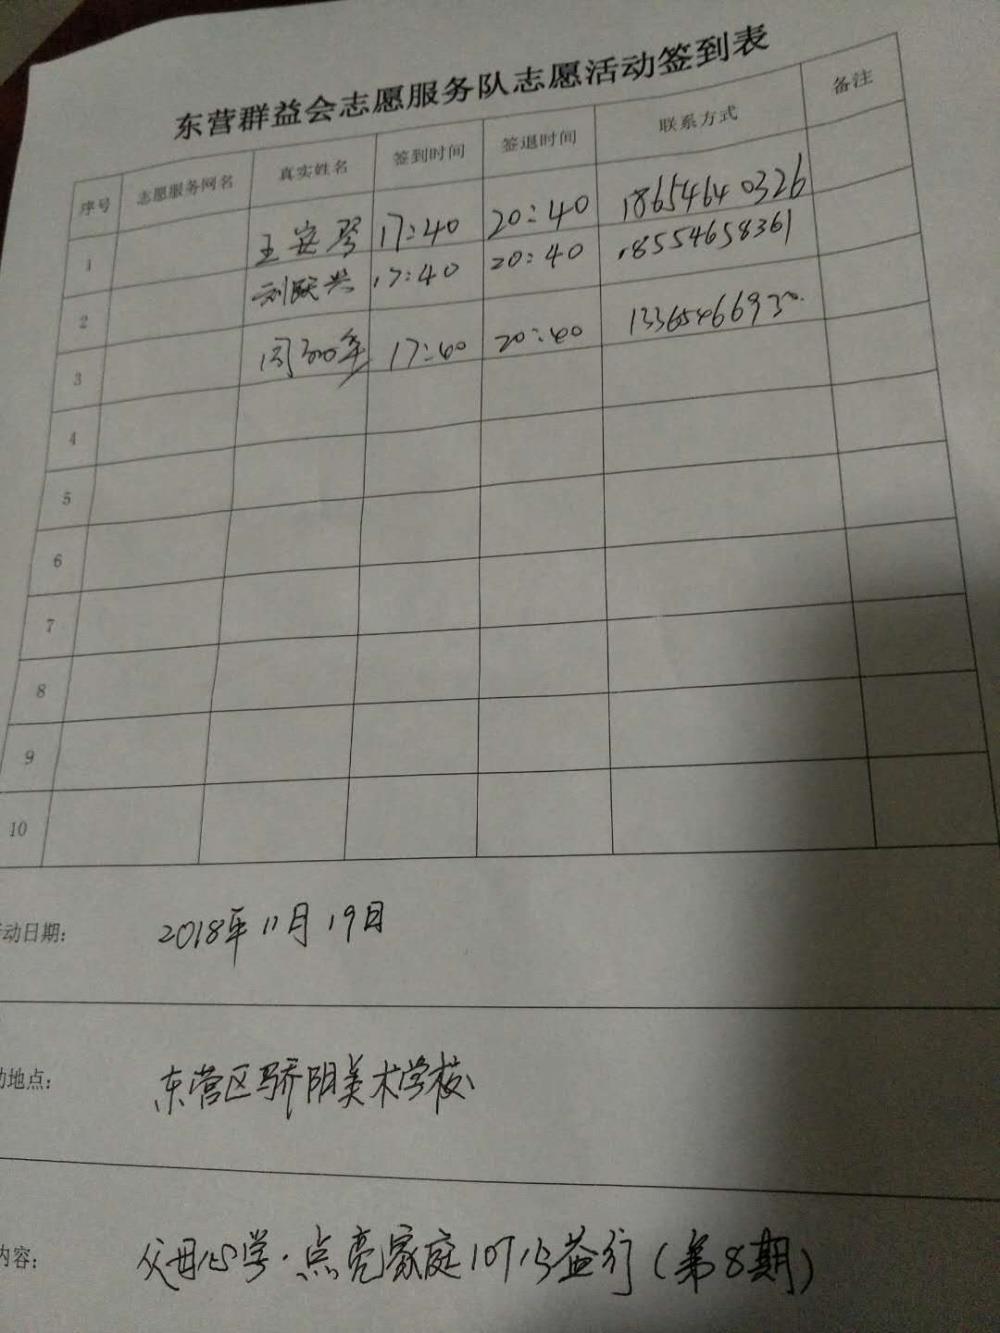 东营群益会志愿服务队志愿活动签到表
序号 志愿服务网名 真实姓名 签到时间 签退时间 联系方式 备注
1 王安琴 17:40 20:40 18654640326
2 刘跃兴 17:40 20:40 18554658361
3 17:40 20:40
4
5
6
7
8
9
10
动日期: 2018年11月19日
地点: 东营区骄阳美术学校
内容: 父母心学·点亮家庭 公益行(第8期)